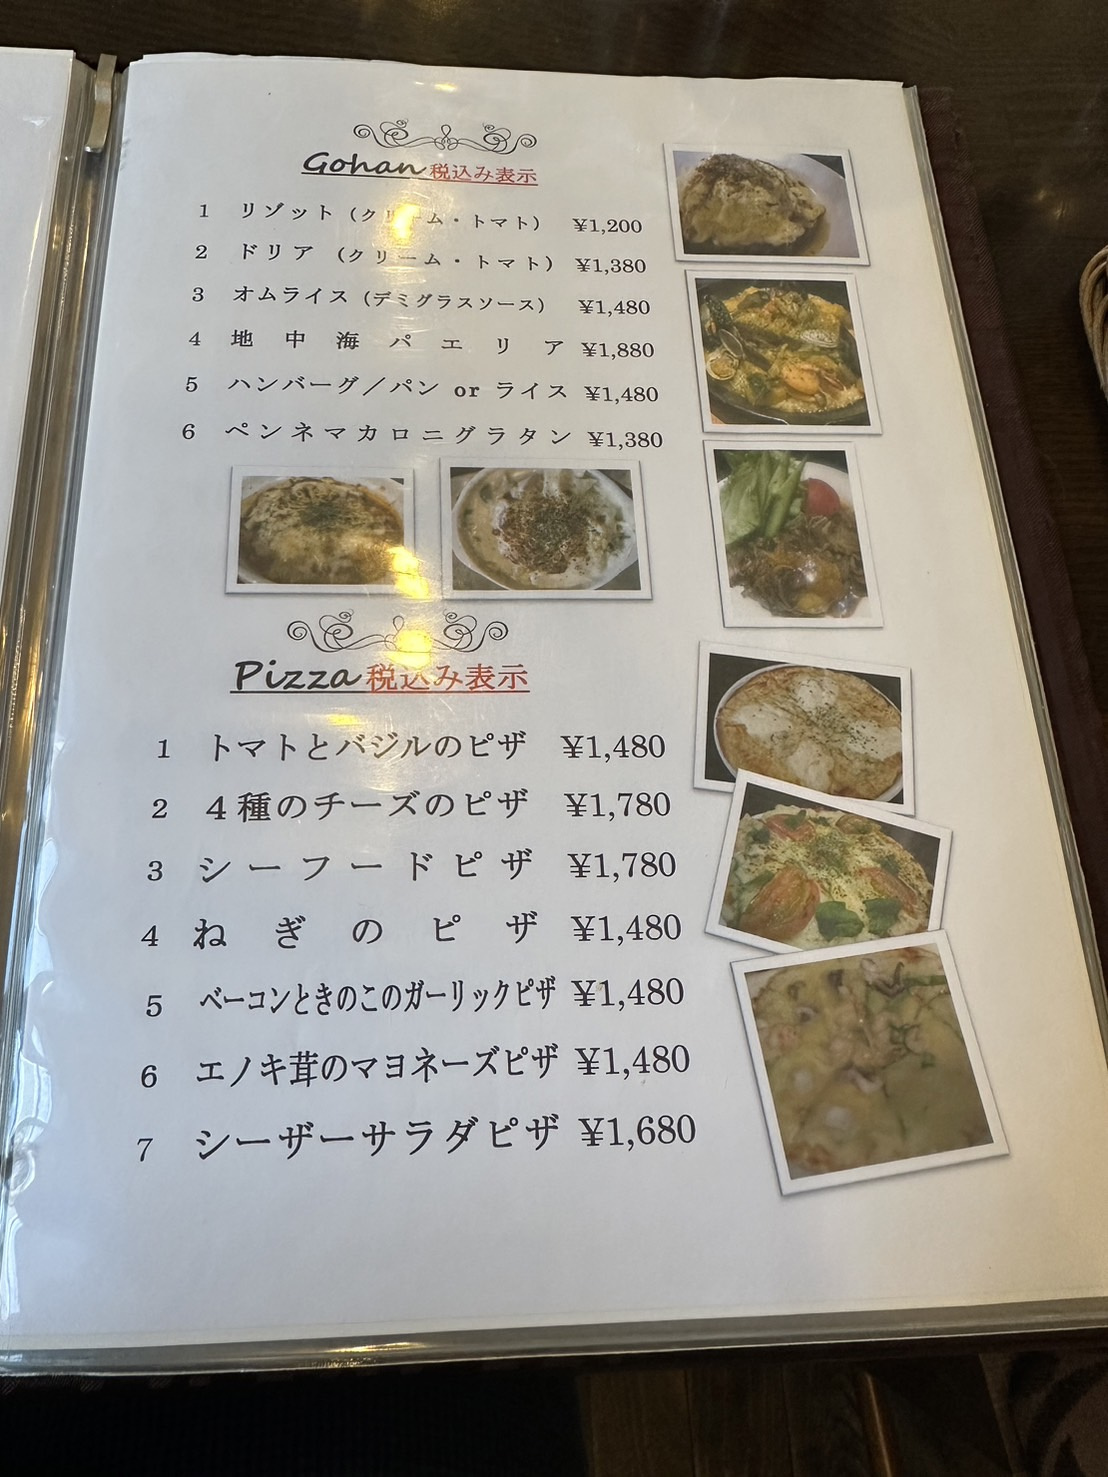 Gohan 税込み表示
1 リゾット（クリーム・トマト） ¥1,200
2 ドリア（クリーム・トマト） ¥1,380
3 オムライス（デミグラスソース） ¥1,480
4 地中海パエリア ¥1,880
5 ハンバーグ／パン or ライス ¥1,480
6 ペンネマカロニグラタン ¥1,380
Pizza 税込み表示
1 トマトとバジルのピザ ¥1,480
2 ４種のチーズのピザ ¥1,780
3 シーフードピザ ¥1,780
4 ねぎのピザ ¥1,480
5 ベーコンときのこのガーリックピザ ¥1,480
6 エノキ茸のマヨネーズピザ ¥1,480
7 シーザーサラダピザ ¥1,680